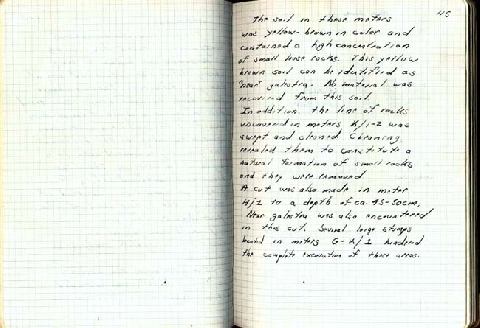 45
The soil in these meters
was yellow-brown in color and
contained a high concentration
of small loose rocks. This yellow
brown soil can be identified as
"near" galestra. No material was
recovered from this soil.
In addition, the line of rocks
uncovered in meters K/1-2 was
swept and cleaned. Cleaning
revealed them to constitute a
natural formation of small rocks
and they were removed.
A cut was also made in meter
H/1 to a depth of ca. 45-50cm,
Near galestra was also encountered
in this cut. Several large stumps
found in meters G-K/1 hindered
the complete excavation of these areas.